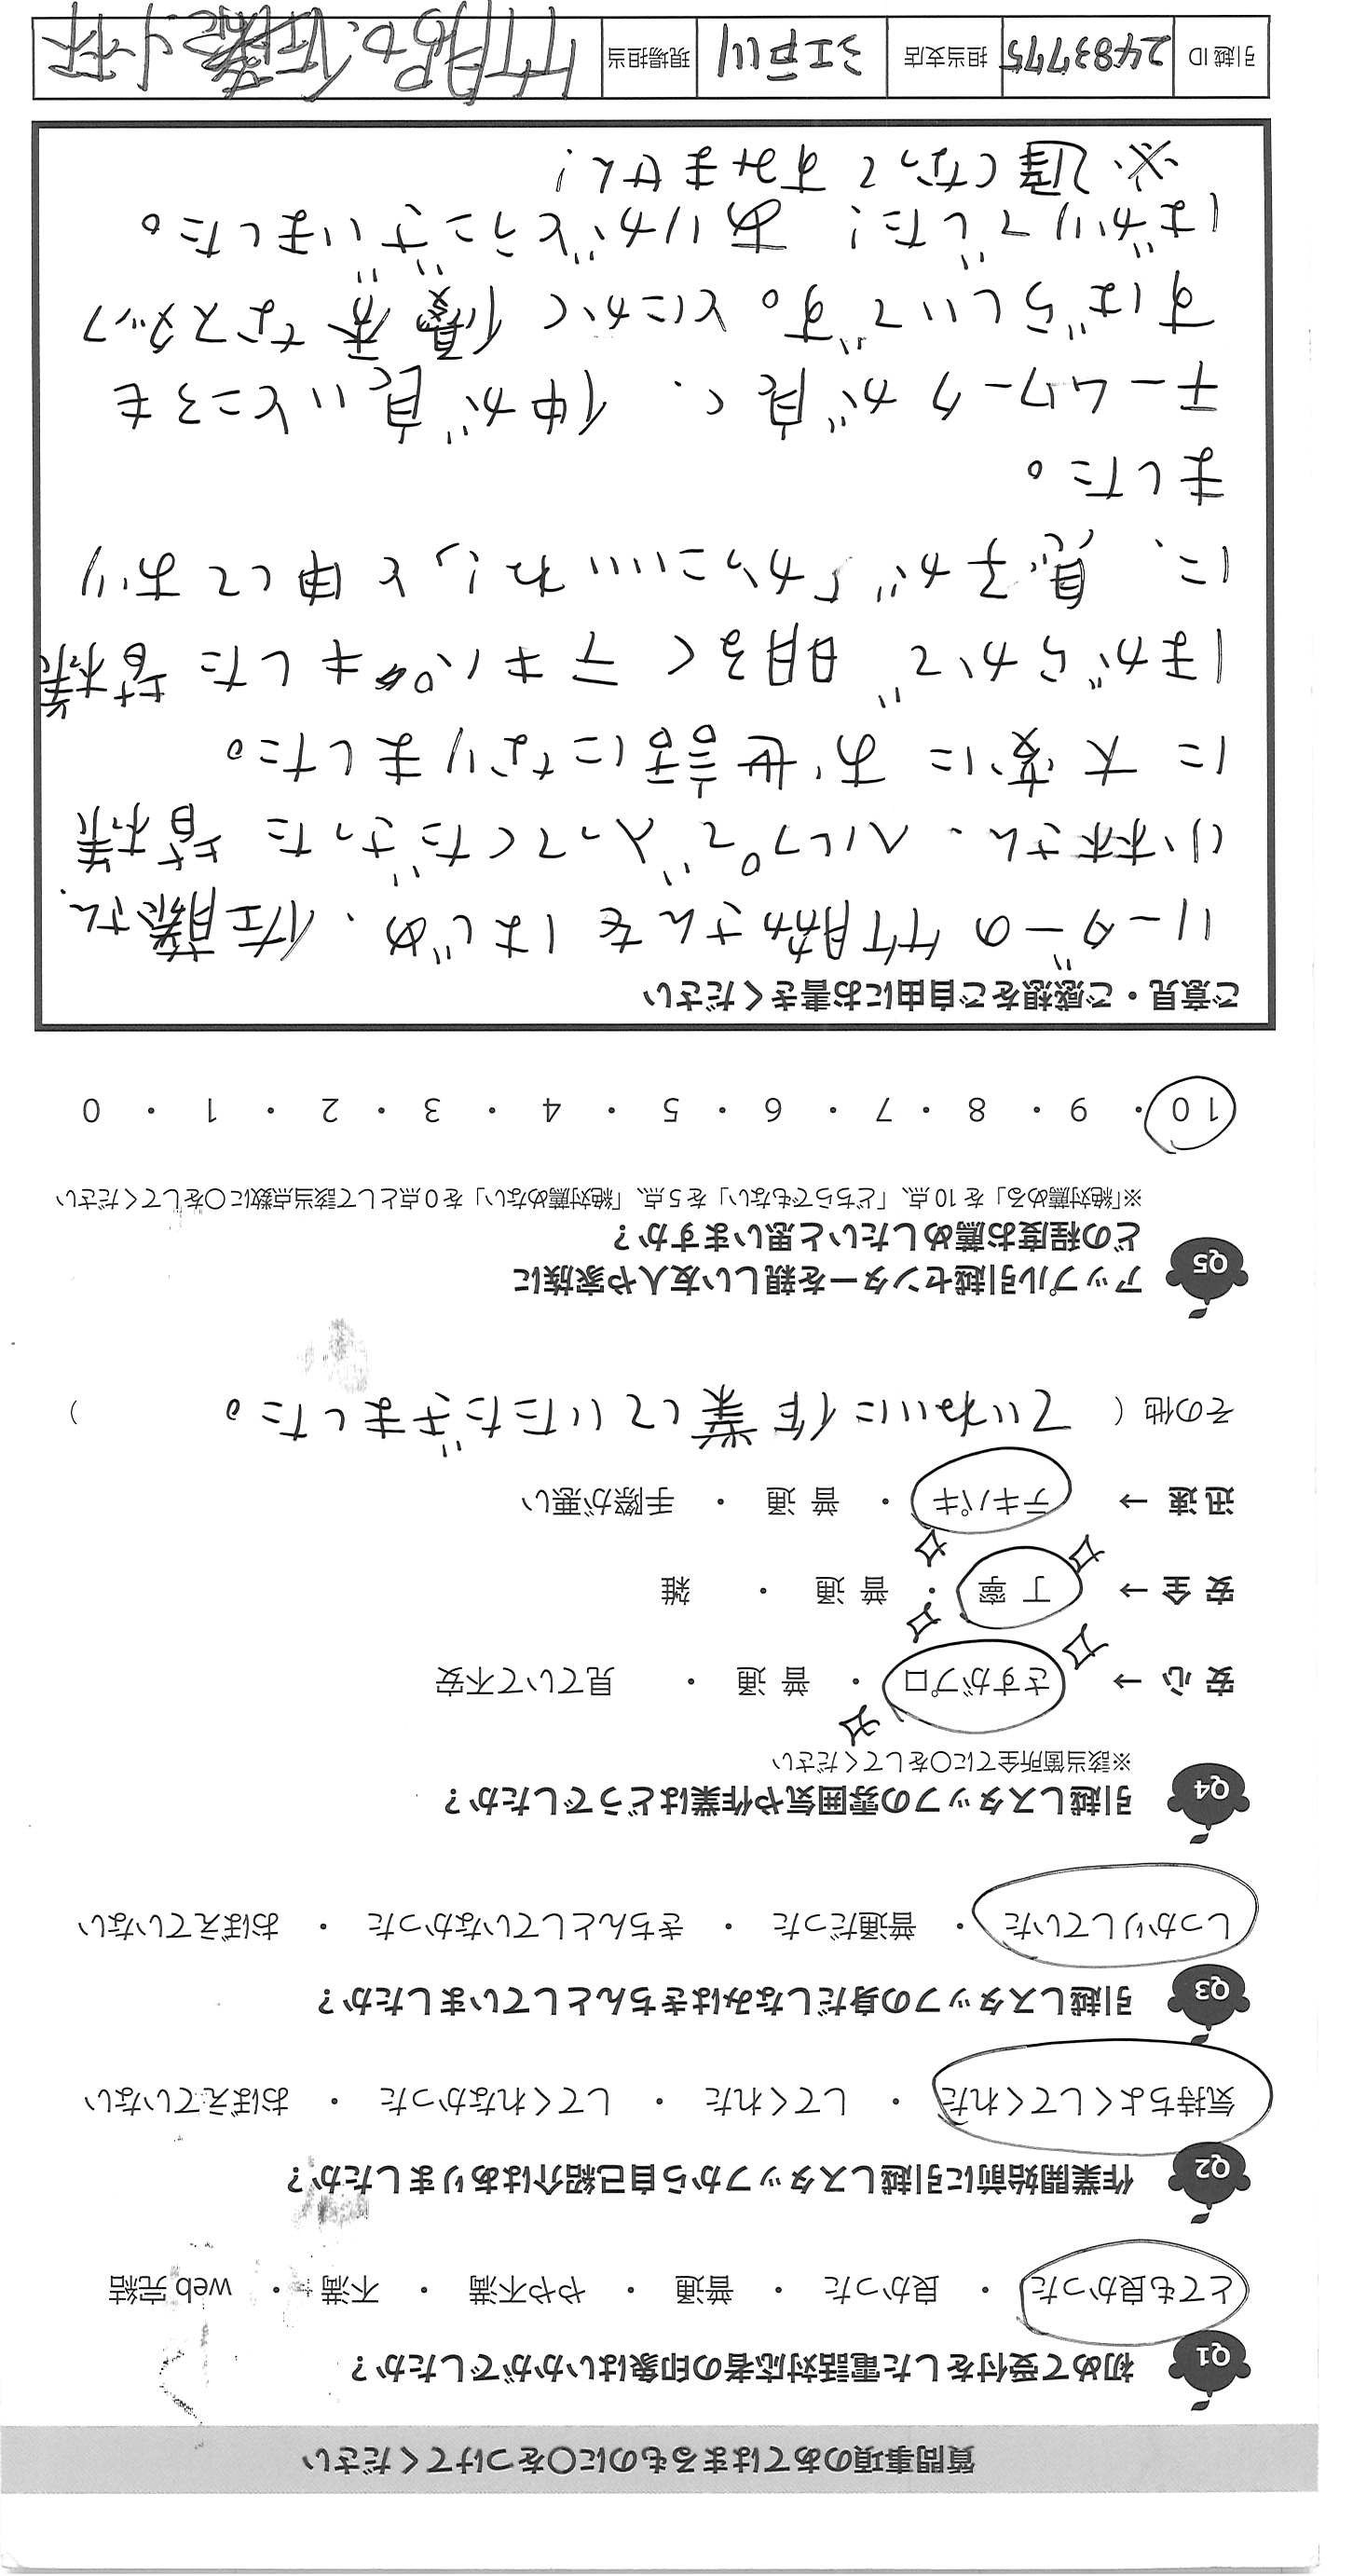 質問事項のあてはまるものに○をつけてください
Q1 初めて受付をした電話対応者の印象はいかがでしたか?
とても良かった ・ 良かった ・ 普通 ・ やや不満 ・ 不満 ・ web 完結
Q2 作業開始前に引越しスタッフから自己紹介はありましたか?
気持ちよくしてくれた ・ してくれた ・ してくれなかった ・ おぼえていない
Q3 引越しスタッフの身だしなみはきちんとしていましたか?
しっかりしていた ・ 普通だった ・ きちんとしていなかった ・ おぼえていない
Q4 引越しスタッフの雰囲気や作業はどうでしたか?
※該当箇所全てに○をしてください
安 心 → さすがプロ ・ 普 通 ・ 見ていて不安
安 全 → 丁 寧 ・ 普 通 ・ 雑
迅 速 → テキパキ ・ 普 通 ・ 手際が悪い
その他 ( ていねいに作業していただきました。 )
Q5 アップル引越センターを親しい友人や家族に
どの程度お薦めしたいと思いますか?
※「絶対薦める」を 10 点、「どちらでもない」を 5 点、「絶対薦めない」を 0 点として該当点数に○をしてください
10 ・ 9 ・ 8 ・ 7 ・ 6 ・ 5 ・ 4 ・ 3 ・ 2 ・ 1 ・ 0
ご意見・ご感想をご自由にお書きください
リーダーの竹脇さんをはじめ、佐藤さん、
小林さん、ヘルプで入ってくださった皆様
に大変にお世話になりました。
ほがらかで明るくテキパキした皆様
に、息子が「かっこいいね!」と申しており
ました。
チームワークが良く、仲が良いところも
すばらしいです。とにかく優秀なスタッフ
ばかりでした! ありがとうございました。
※遅くなってすみません!
引越 ID 2483775 担当支店 江戸川 現場担当 竹脇 佐藤 小林